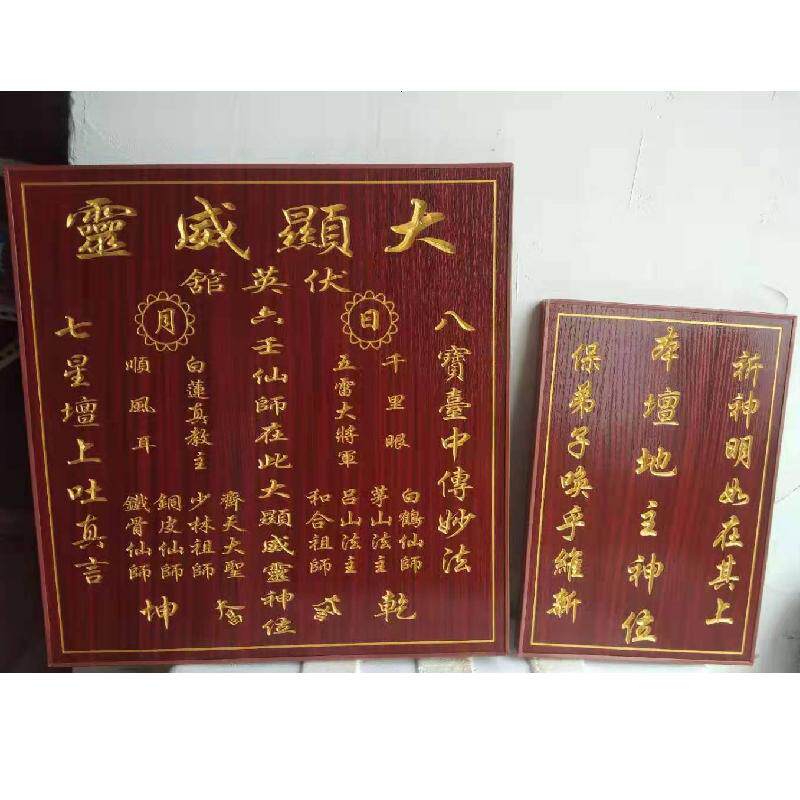 大顯威靈
伏英館
日
月
八寶臺中傳妙法
千里眼
五雷大將軍
六壬仙師在此大顯威靈神位
白蓮真教主
順風耳
七星壇上吐真言
白鶴仙師
茅山法主
呂山法主
和合祖師
濟天大聖
少林祖師
銅皮仙師
鐵骨仙師
乾
坤
祈神明如在其上
本壇地主神位
保弟子喚乎維新